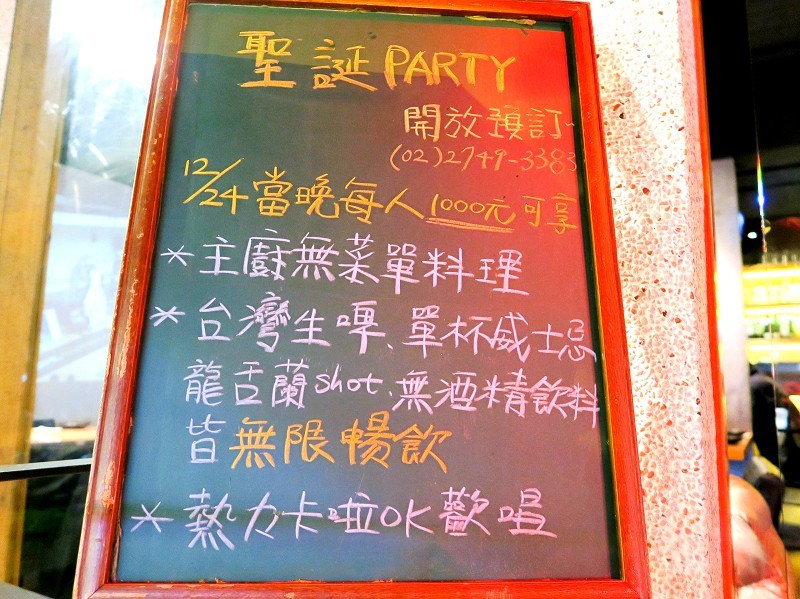 聖誕PARTY
開放預訂~
(02)2749-3383
12/24當晚每人1000元可享
*主廚無菜單料理
*台灣生啤、單杯威士忌
龍舌蘭shot、無酒精飲料
皆無限暢飲
*熱力卡啦OK歡唱